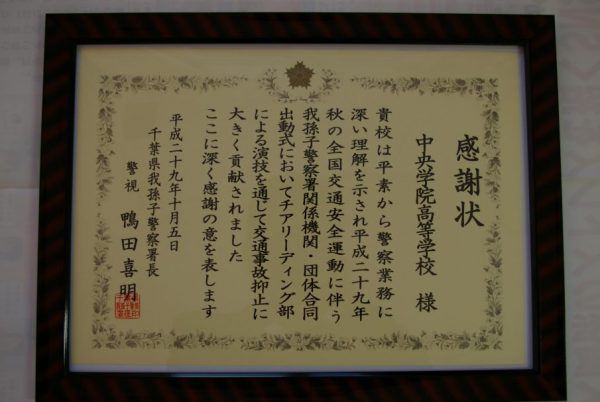 感謝状
中央学院高等学校 様
貴校は平素から警察業務に
深い理解を示され平成二十九年
秋の全国交通安全運動に伴う
我孫子警察署関係機関・団体合同
出動式においてチアリーディング部
による演技を通じて交通事故抑止に
大きく貢献されました
ここに深く感謝の意を表します
平成二十九年十月五日
千葉県我孫子警察署長
警視 鴨田喜明